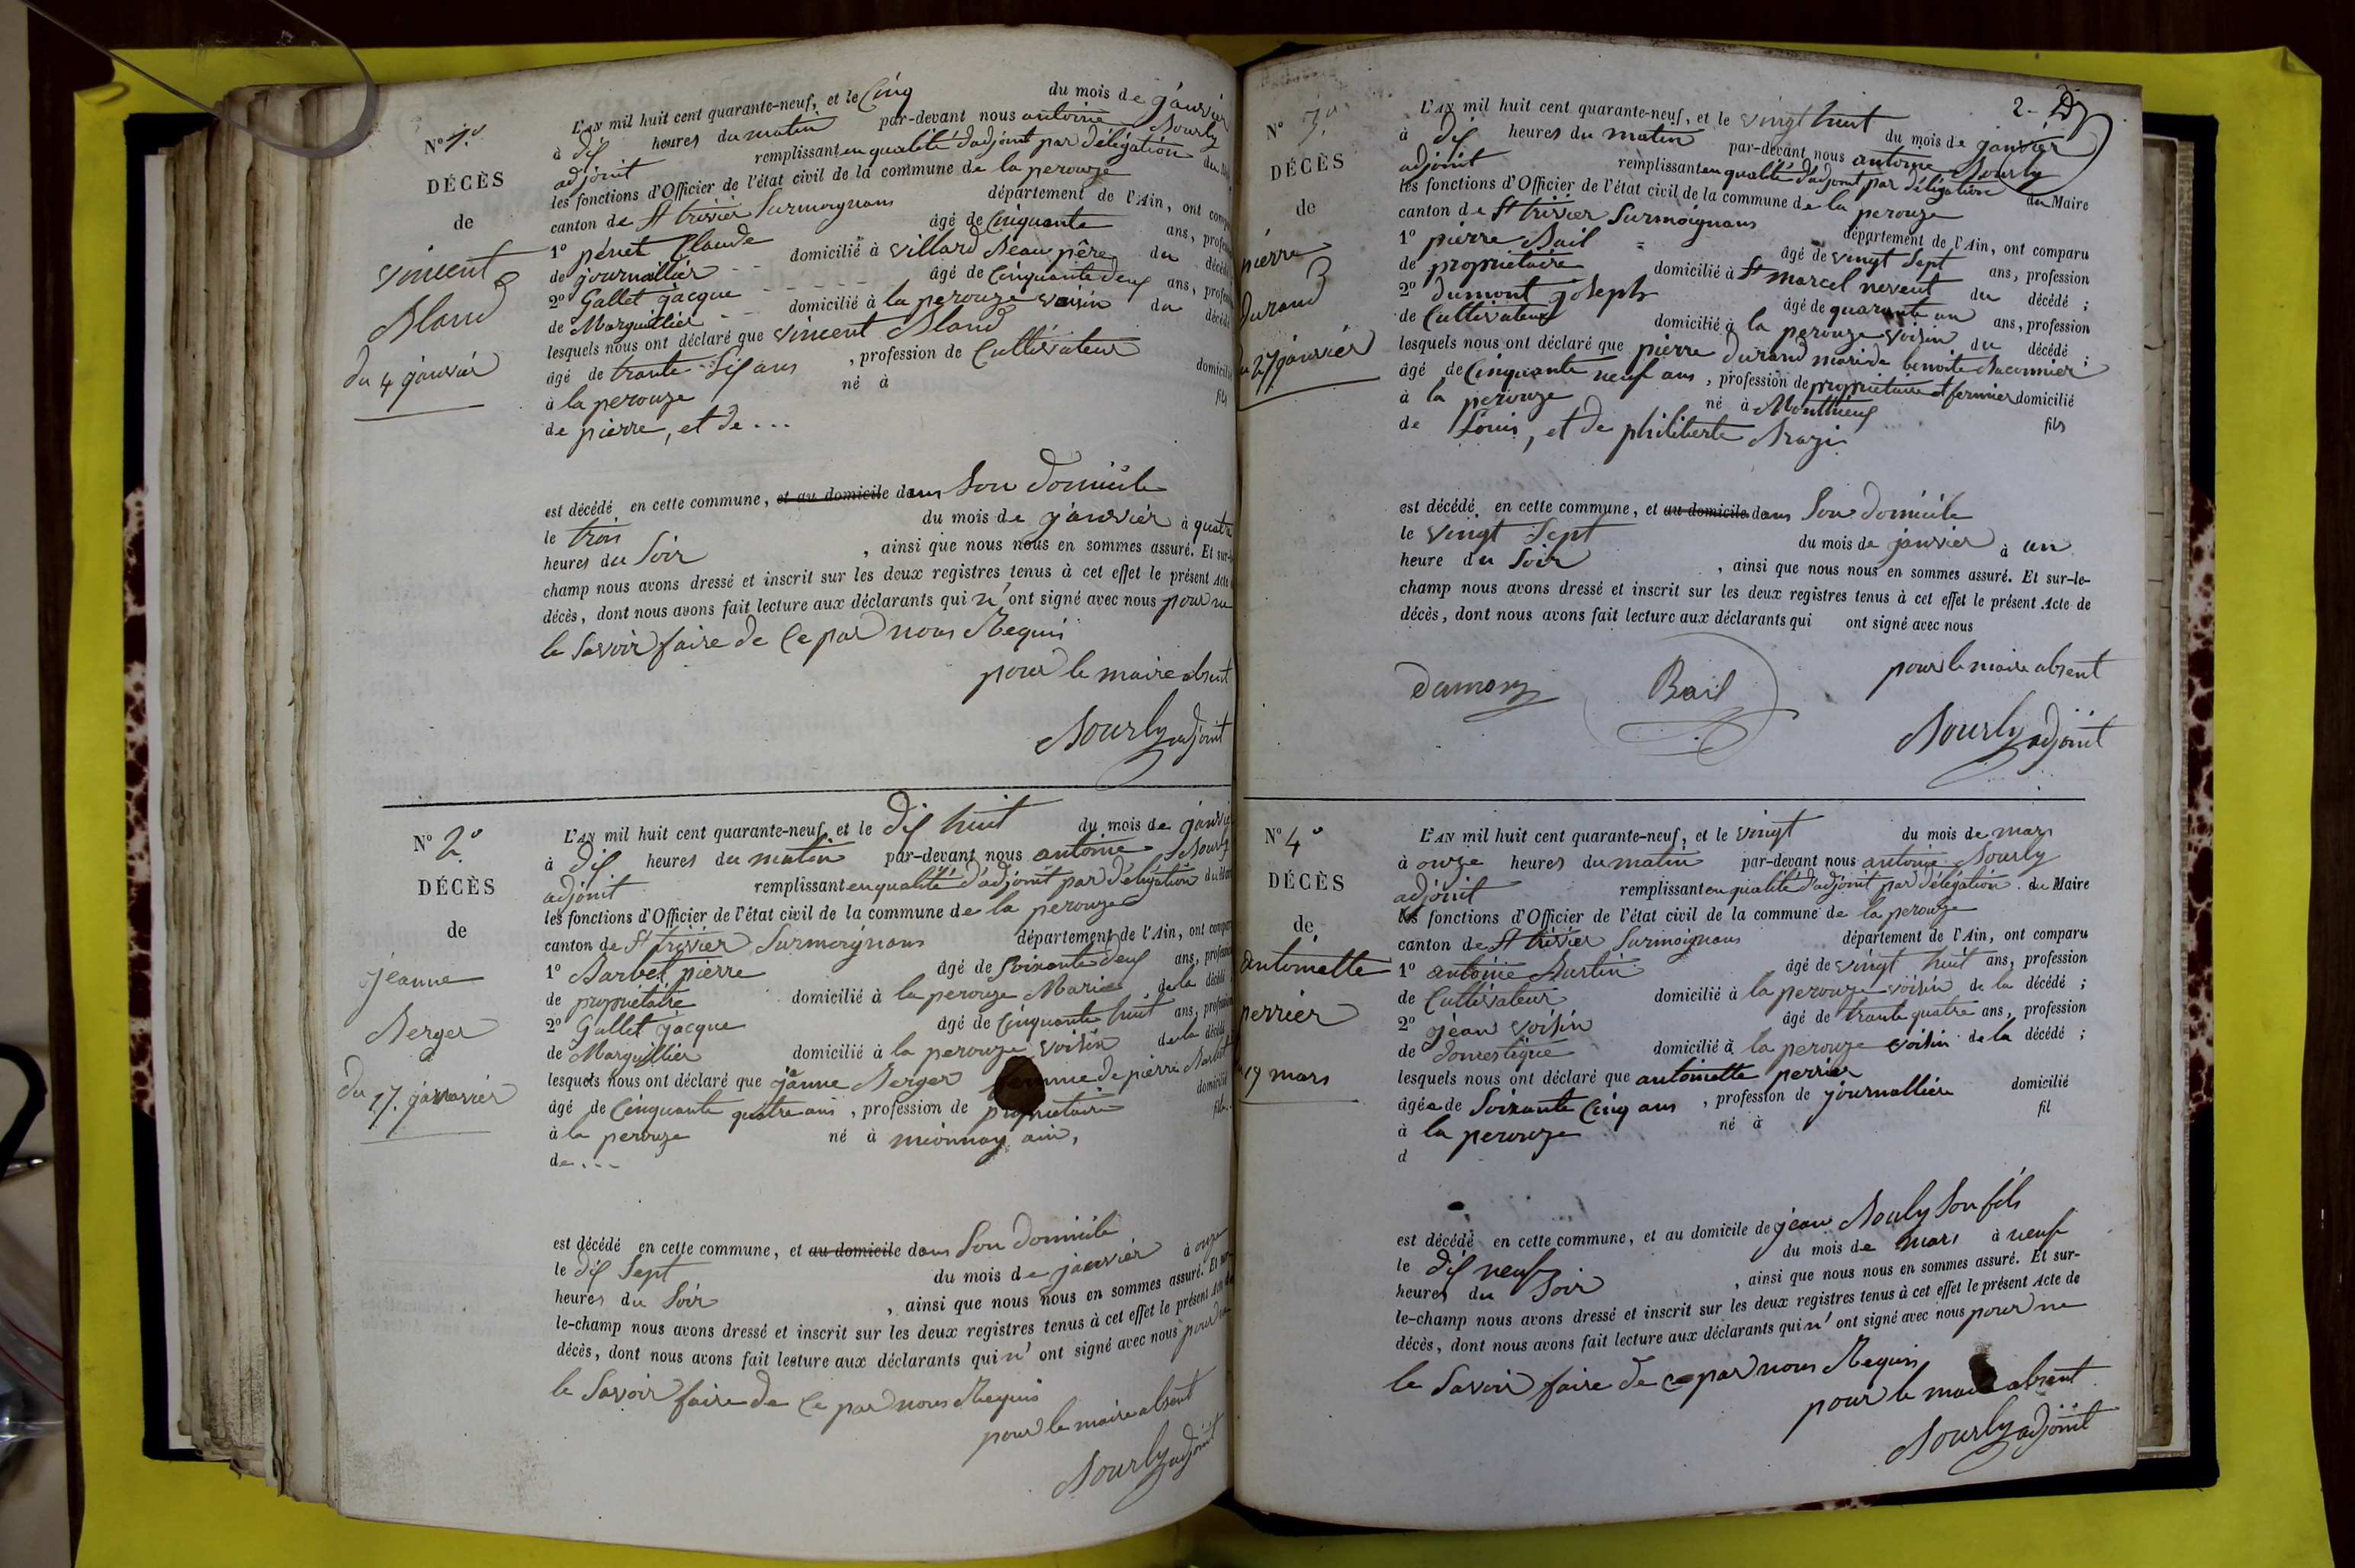 N° 1°
DÉCÈS
de
vincent
Bland
du 4 janvier
L'AN mil huit cent quarante-neuf, et le Cinq du mois de janvier
à dix heures du matin par-devant nous antoine Bourly
adjoint remplissant en qualité d'adjoint par délégation du
les fonctions d'Officier de l'état civil de la commune de la perouze
canton de St trivier Surmoignans département de l'Ain, ont
1° penet Claude âgé de Cinquante ans,
de journallier domicilié à villard Beau père du
2° Gallet jacque âgé de Cinquante deux ans,
de Marguillier domicilié à la perouze voisin du
lesquels nous ont déclaré que vincent Bland
âgé de trante Six ans , profession de Cultivateur
à la perouze né à
de pierre, et de ...
est décédé en cette commune, et au domicile dans Son domicile
le trois du mois de janvier à quatre
heures du Soir , ainsi que nous nous en sommes assuré. Et sur-
champ nous avons dressé et inscrit sur les deux registres tenus à cet effet le présent Acte
décès, dont nous avons fait lecture aux déclarants qui n' ont signé avec nous pour ne
le Savoir faire de Ce par nous Requis
pour le maire absent
Bourly adjoint
N° 2°
DÉCÈS
de
jeanne
Berger
du 17. janvier
L'AN mil huit cent quarante-neuf, et le dix huit du mois de janvier
à dix heures du matin par-devant nous antoine Bourly
adjoint remplissant en qualité d'adjoint par délégation du
les fonctions d'Officier de l'état civil de la commune de la perouze
canton de St trivier Surmoignans département de l'Ain, ont
1° Barbet pierre âgé de Soixante deux ans,
de propriétaire domicilié à la perouze Marie de la
2° Gallet jacque âgé de Cinquante huit ans,
de Marguillier domicilié à la perouze voisin de la
lesquels nous ont déclaré que jeanne Berger femme de pierre Barbet
âgé de Cinquante quatre ans , profession de propriétaire domicilié
à la perouze né à mionnay ain,
de ...
est décédé en cette commune, et au domicile dans Son domicile
le dix Sept du mois de janvier à onze
heures du Soir , ainsi que nous nous en sommes assuré. Et
le-champ nous avons dressé et inscrit sur les deux registres tenus à cet effet le présent Acte
décès, dont nous avons fait lecture aux déclarants qui n' ont signé avec nous pour ne
le Savoir faire de Ce par nous Requis
pour le maire absent
Bourly adjoint
2-
N° 3°
DÉCÈS
de
pierre
durand
27 janvier
L'AN mil huit cent quarante-neuf, et le vingt huit du mois de janvier
à dix heures du matin par-devant nous antoine Bourly
adjoint remplissant en qualité d'adjoint par délégation du Maire
les fonctions d'Officier de l'état civil de la commune de la perouze
canton de St trivier Surmoignans département de l'Ain, ont comparu
1° pierre Bail âgé de vingt Sept ans, profession
de propriétaire domicilié à St marcel neveut du décédé ;
2° dumont joseph âgé de quarante un ans, profession
de Cultivateur domicilié à la perouze voisin du décédé ;
lesquels nous ont déclaré que pierre durand mari de benoite Baconnier
âgé de Cinquante neuf ans , profession de propriétaire et fermier domicilié
à la perouze né à Monthieux fils
de Louis, et de philiberte
est décédé en cette commune, et au domicile dans Son domicile
le vingt Sept du mois de janvier à un
heure du Soir , ainsi que nous nous en sommes assuré. Et sur-le-
champ nous avons dressé et inscrit sur les deux registres tenus à cet effet le présent Acte de
décès, dont nous avons fait lecture aux déclarants qui ont signé avec nous
pour le maire absent
Bail
Bourly adjoint
N° 4°
DÉCÈS
de
antoinette
perrier
19 mars
L'AN mil huit cent quarante-neuf, et le vingt du mois de mars
à onze heures du matin par-devant nous antoine Bourly
adjoint remplissant en qualité d'adjoint par délégation du Maire
les fonctions d'Officier de l'état civil de la commune de la perouze
canton de St trivier Surmoignans département de l'Ain, ont comparu
1° antoine Martin âgé de vingt huit ans, profession
de Cultivateur domicilié à la perouze voisin de la décédé ;
2° jean voisin âgé de trante quatre ans, profession
de domestique domicilié à la perouze voisin de la décédé ;
lesquels nous ont déclaré que antoinette perrier
âgée de Soixante Cinq ans , profession de journallière domicilié
à la perouze né à fil
d
est décédé en cette commune, et au domicile de jean Bouly Son fils
le dix neuf du mois de mars à neuf
heures du Soir , ainsi que nous nous en sommes assuré. Et sur-
le-champ nous avons dressé et inscrit sur les deux registres tenus à cet effet le présent Acte de
décès, dont nous avons fait lecture aux déclarants qui n' ont signé avec nous pour ne
le Savoir faire de ce par nous Requis
pour le maire absent
Bourly adjoint